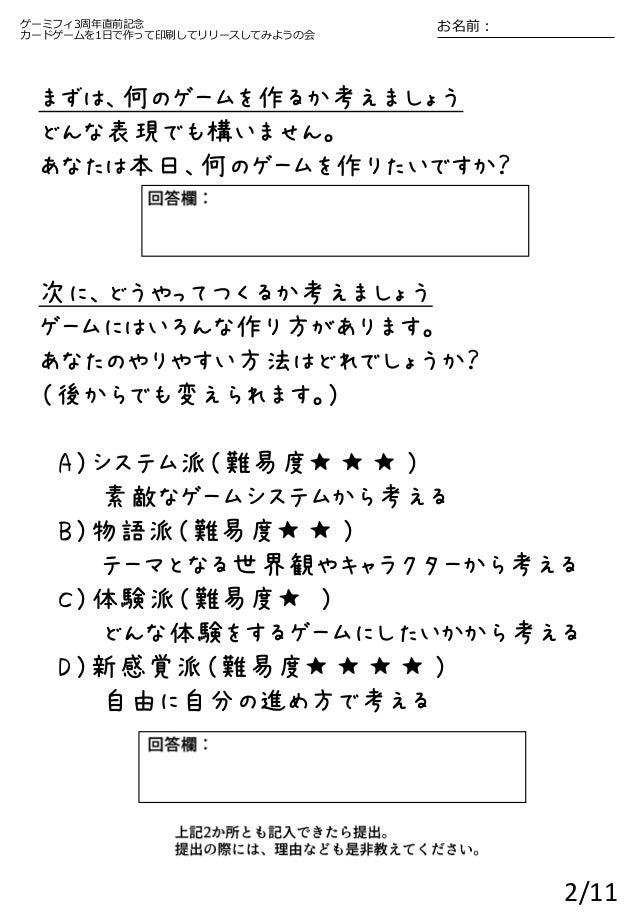 ゲーミフィ3周年直前記念
カードゲームを1日で作って印刷してリリースしてみようの会
お名前：
まずは、何のゲームを作るか考えましょう
どんな表現でも構いません。
あなたは本日、何のゲームを作りたいですか?
回答欄：
次に、どうやってつくるか考えましょう
ゲームにはいろんな作り方があります。
あなたのやりやすい方法はどれでしょうか?
(後からでも変えられます。)
A)システム派(難易度★★★)
素敵なゲームシステムから考える
B)物語派(難易度★★)
テーマとなる世界観やキャラクターから考える
C)体験派(難易度★ )
どんな体験をするゲームにしたいかから考える
D)新感覚派(難易度★★★★)
自由に自分の進め方で考える
回答欄：
上記2か所とも記入できたら提出。
提出の際には、理由なども是非教えてください。
2/11